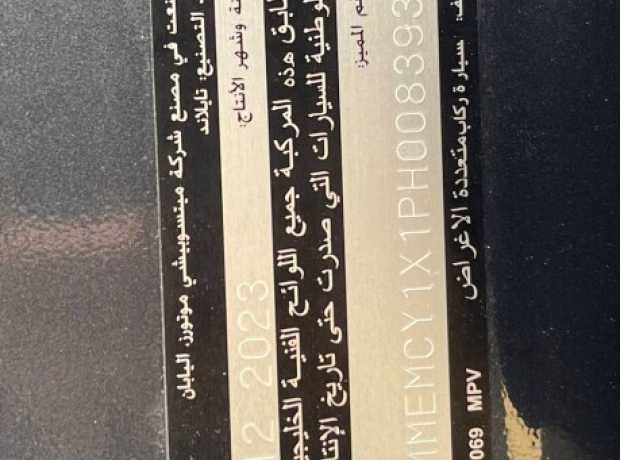 نعت في مصنع شركة ميتسوبيشي موتورز, اليابان
التصنيع: تايلاند
ة وشهر الأنتاج:
12 2023
ابق هذه المركبة جميع اللوائح الفنية الخليجي
وطنية للسيارات التي صدرت حتى تاريخ الإنتا
م المميز:
MMEMCY1X1PH008393
: سيارة ركاب متعددة الاغراض
069 MPV